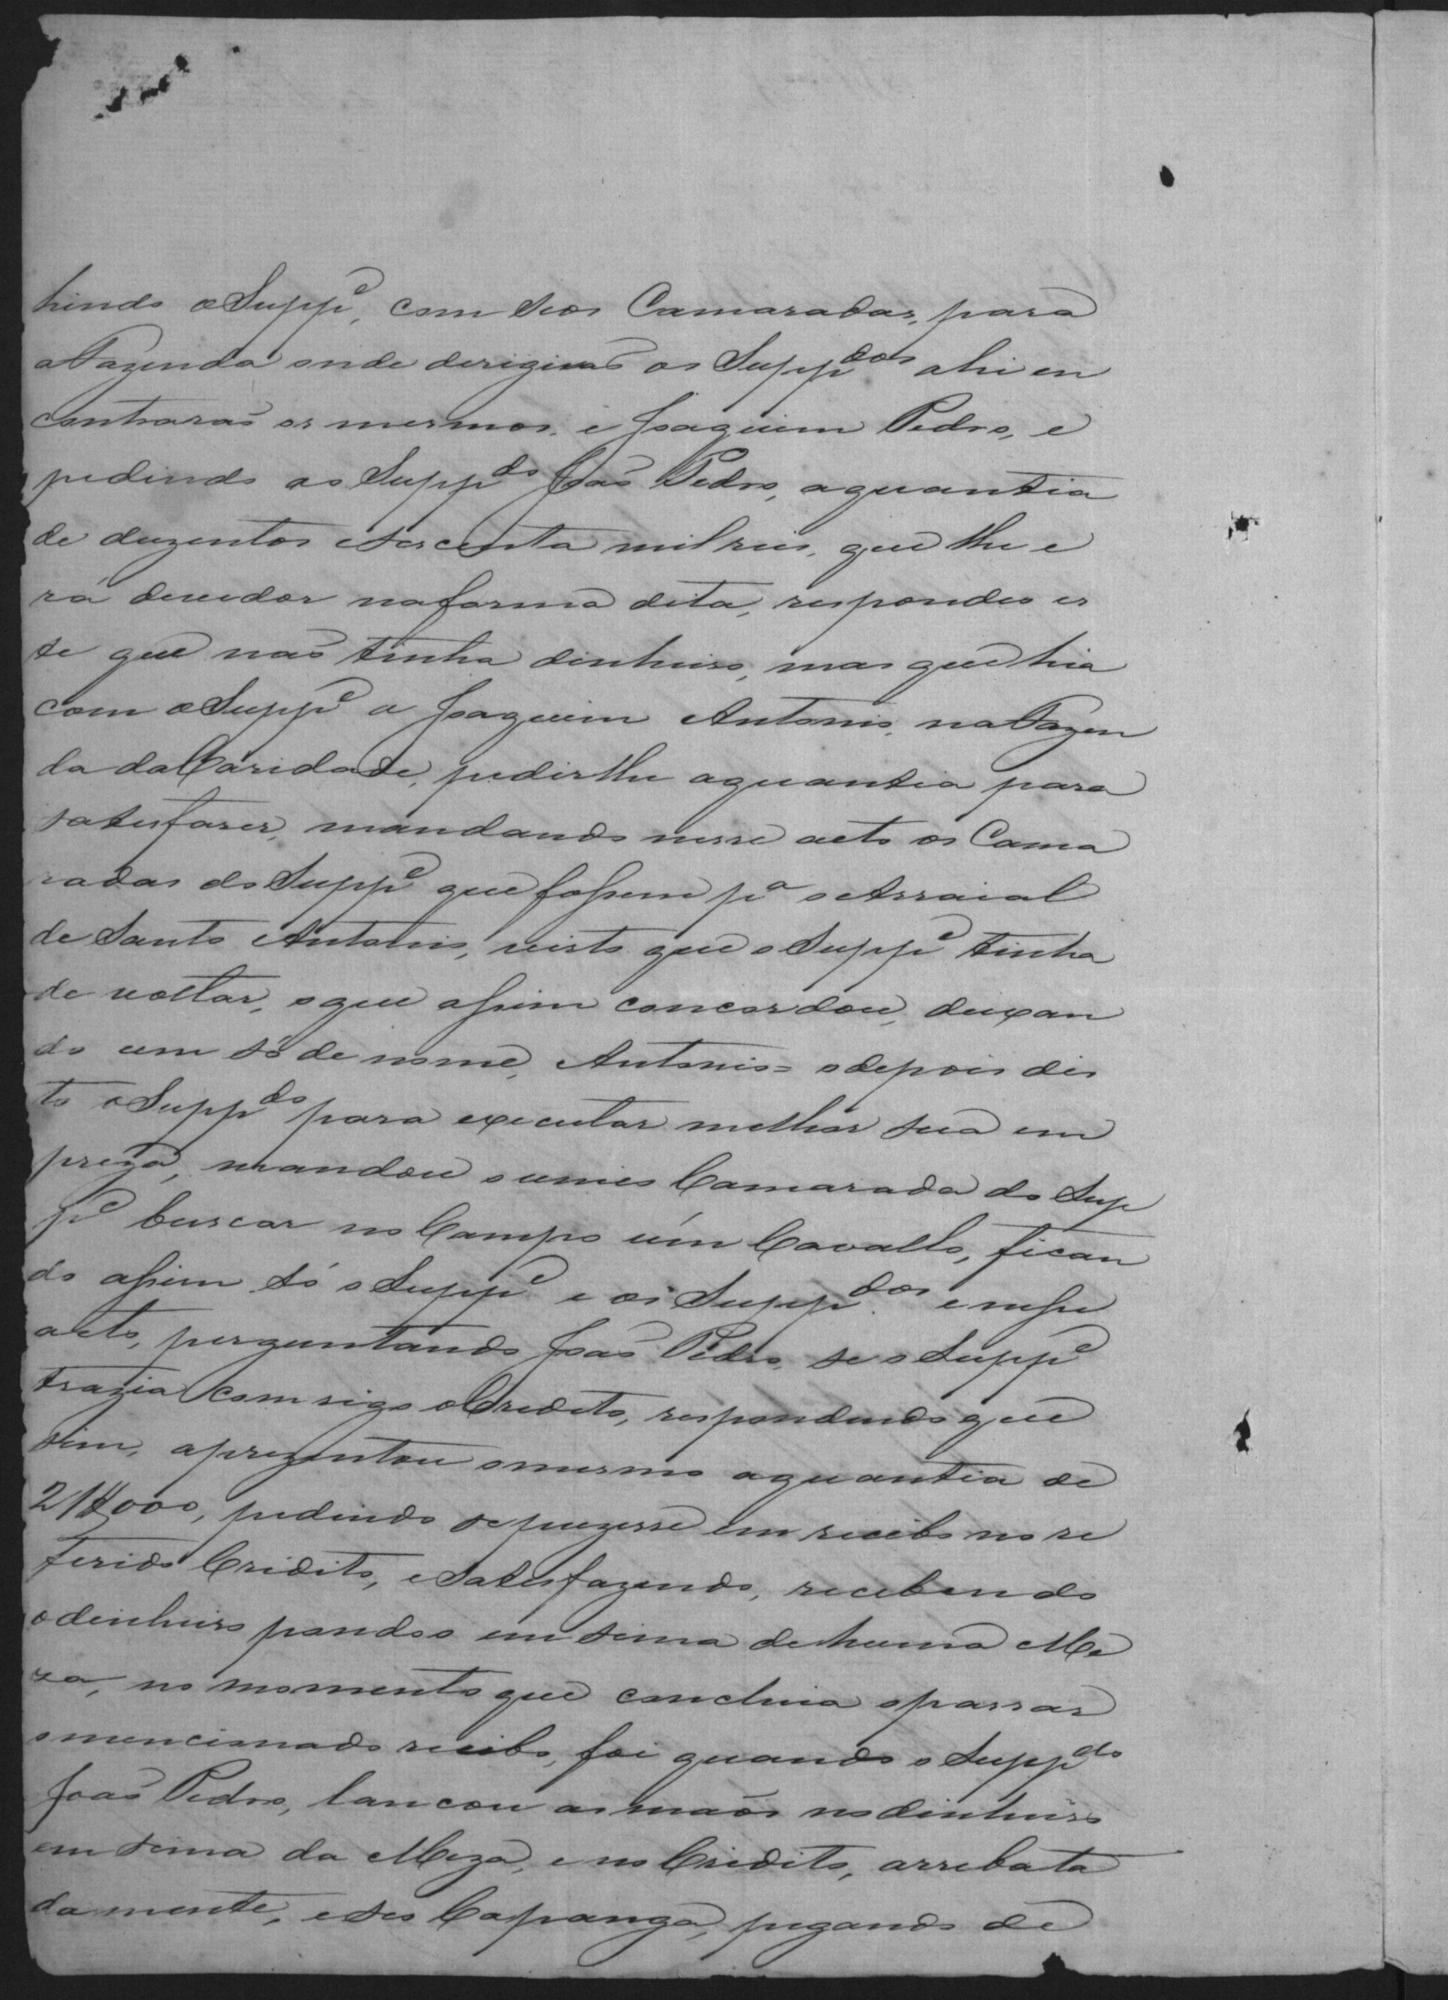 hindo o Supp.e, com seos Camaradas, para
a Fazenda onde derigiraõ os Supp.dos ahi en
contraraõ os mesmos, e Joaquim Pedro, e
pedindo ao Supp.do Joaõ Pedro, a quantia
de duzentos e sescenta mil reis, que lhe e
rá devedor na forma dita, respondeo es
te que naõ tinha dinheiro, mas que hia
com o Supp.e a Joaquim Antonio, na Fazen
da da Caridade, pedir lhe a quantia para
satesfazer, mandando nesse acto os Cama
radas do Supp.e que fossem p.a o Arraial
de Santo Antonio, visto que o Supp.e tinha
de voltar, o que assim concordou, deixan
do um só de nome, Antonio = e depois dis
to o Supp.do para executar melhor sua em
preza, mandou o unico Camarada do Sup
p.e buscar no Campo um Cavallo, fican
do assim só o Supp.e e os Supp.dos e nesse
acto, perguntando Joaõ Pedro, se o Supp.e
trazia com sigo o Credito, respondendo que
sim, aprezentou o mesmo a quantia de
21$000, pedindo se puzesse um recibo no re
ferido Credito, e satesfazendo, recebendo
o dinheiro pondo o em sima de huma Me
za, no momento que concluia o passar
o mencionado recibo, foi quando o Supp.do
Joaõ Pedro, lancou as maõs no dinheiro
em sima da Meza, e no Credito, arrebata
damente, e seo Capanga, pegando de